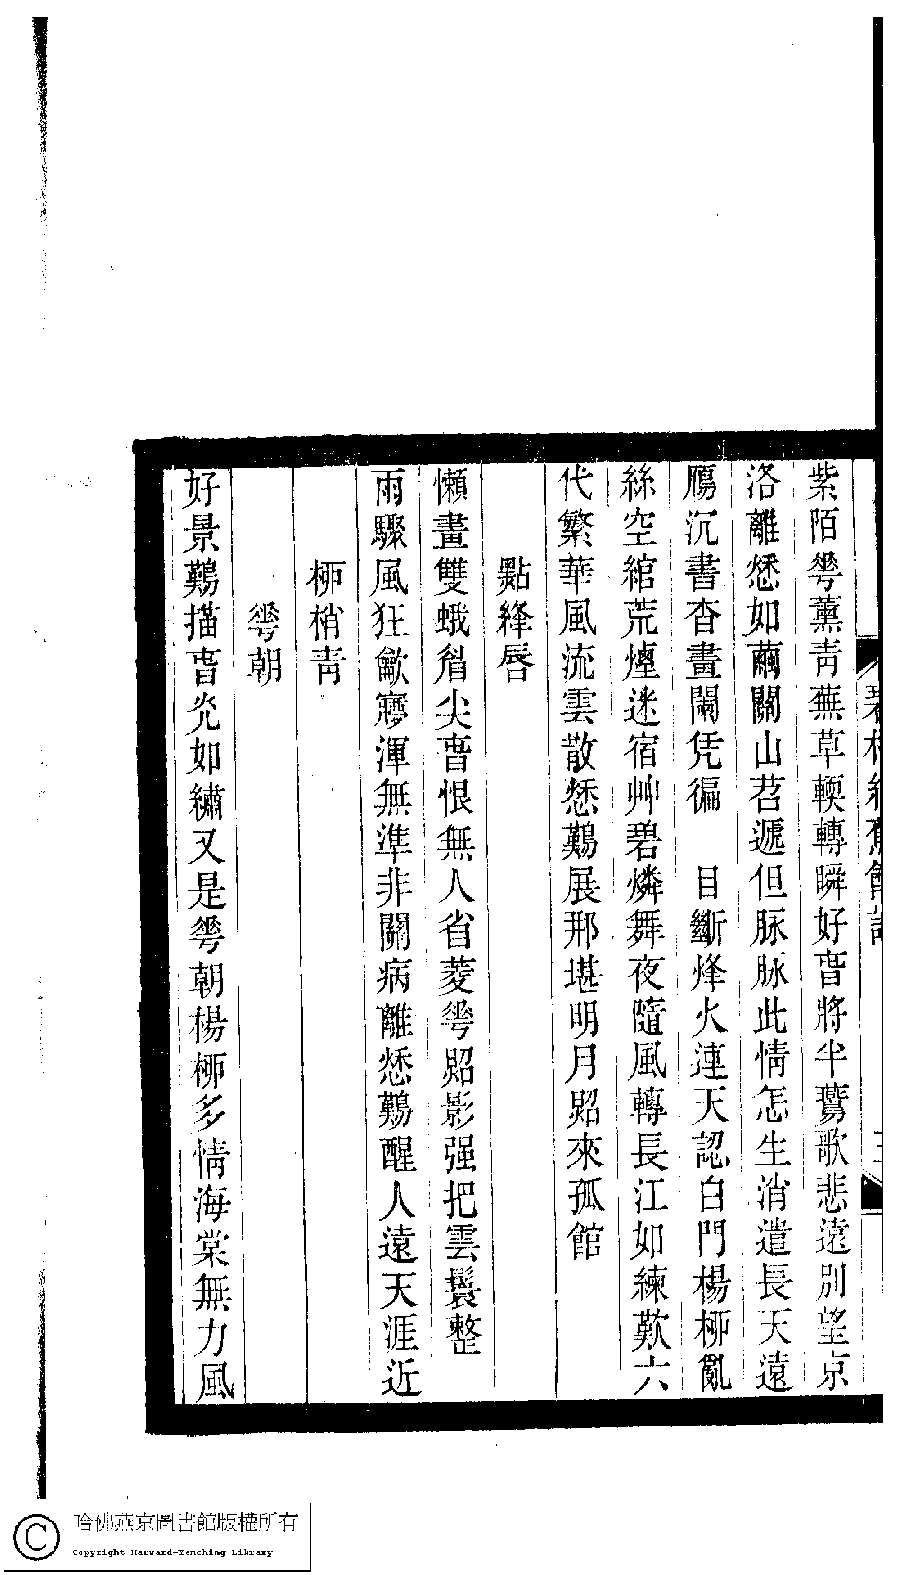 紫陌芲薰青蕪草輭轉瞬好旾將半鶯歌悲遠別望京
洛離愁如繭關山苕遞但脉脉此情怎生消遣長天遠
鴈沉書杳畫闌凭徧　目斷烽火連天認白門楊柳亂
絲空綰荒煙迷宿艸碧燐舞夜隨風轉長江如練歎六
代繁華風流雲散愁難展那堪明月照來孤館
點絳唇
懶畫雙蛾眉尖旾恨無人省菱芲照影强把雲鬟整
雨驟風狂歔寱渾無準非關病離愁難醒人遠天涯近
柳梢青
芲朝
好景難描旾光如繡又是芲朝楊柳多情海棠無力風
哈佛燕京圖書館版權所有
Copyright Harvard-Yenching Library